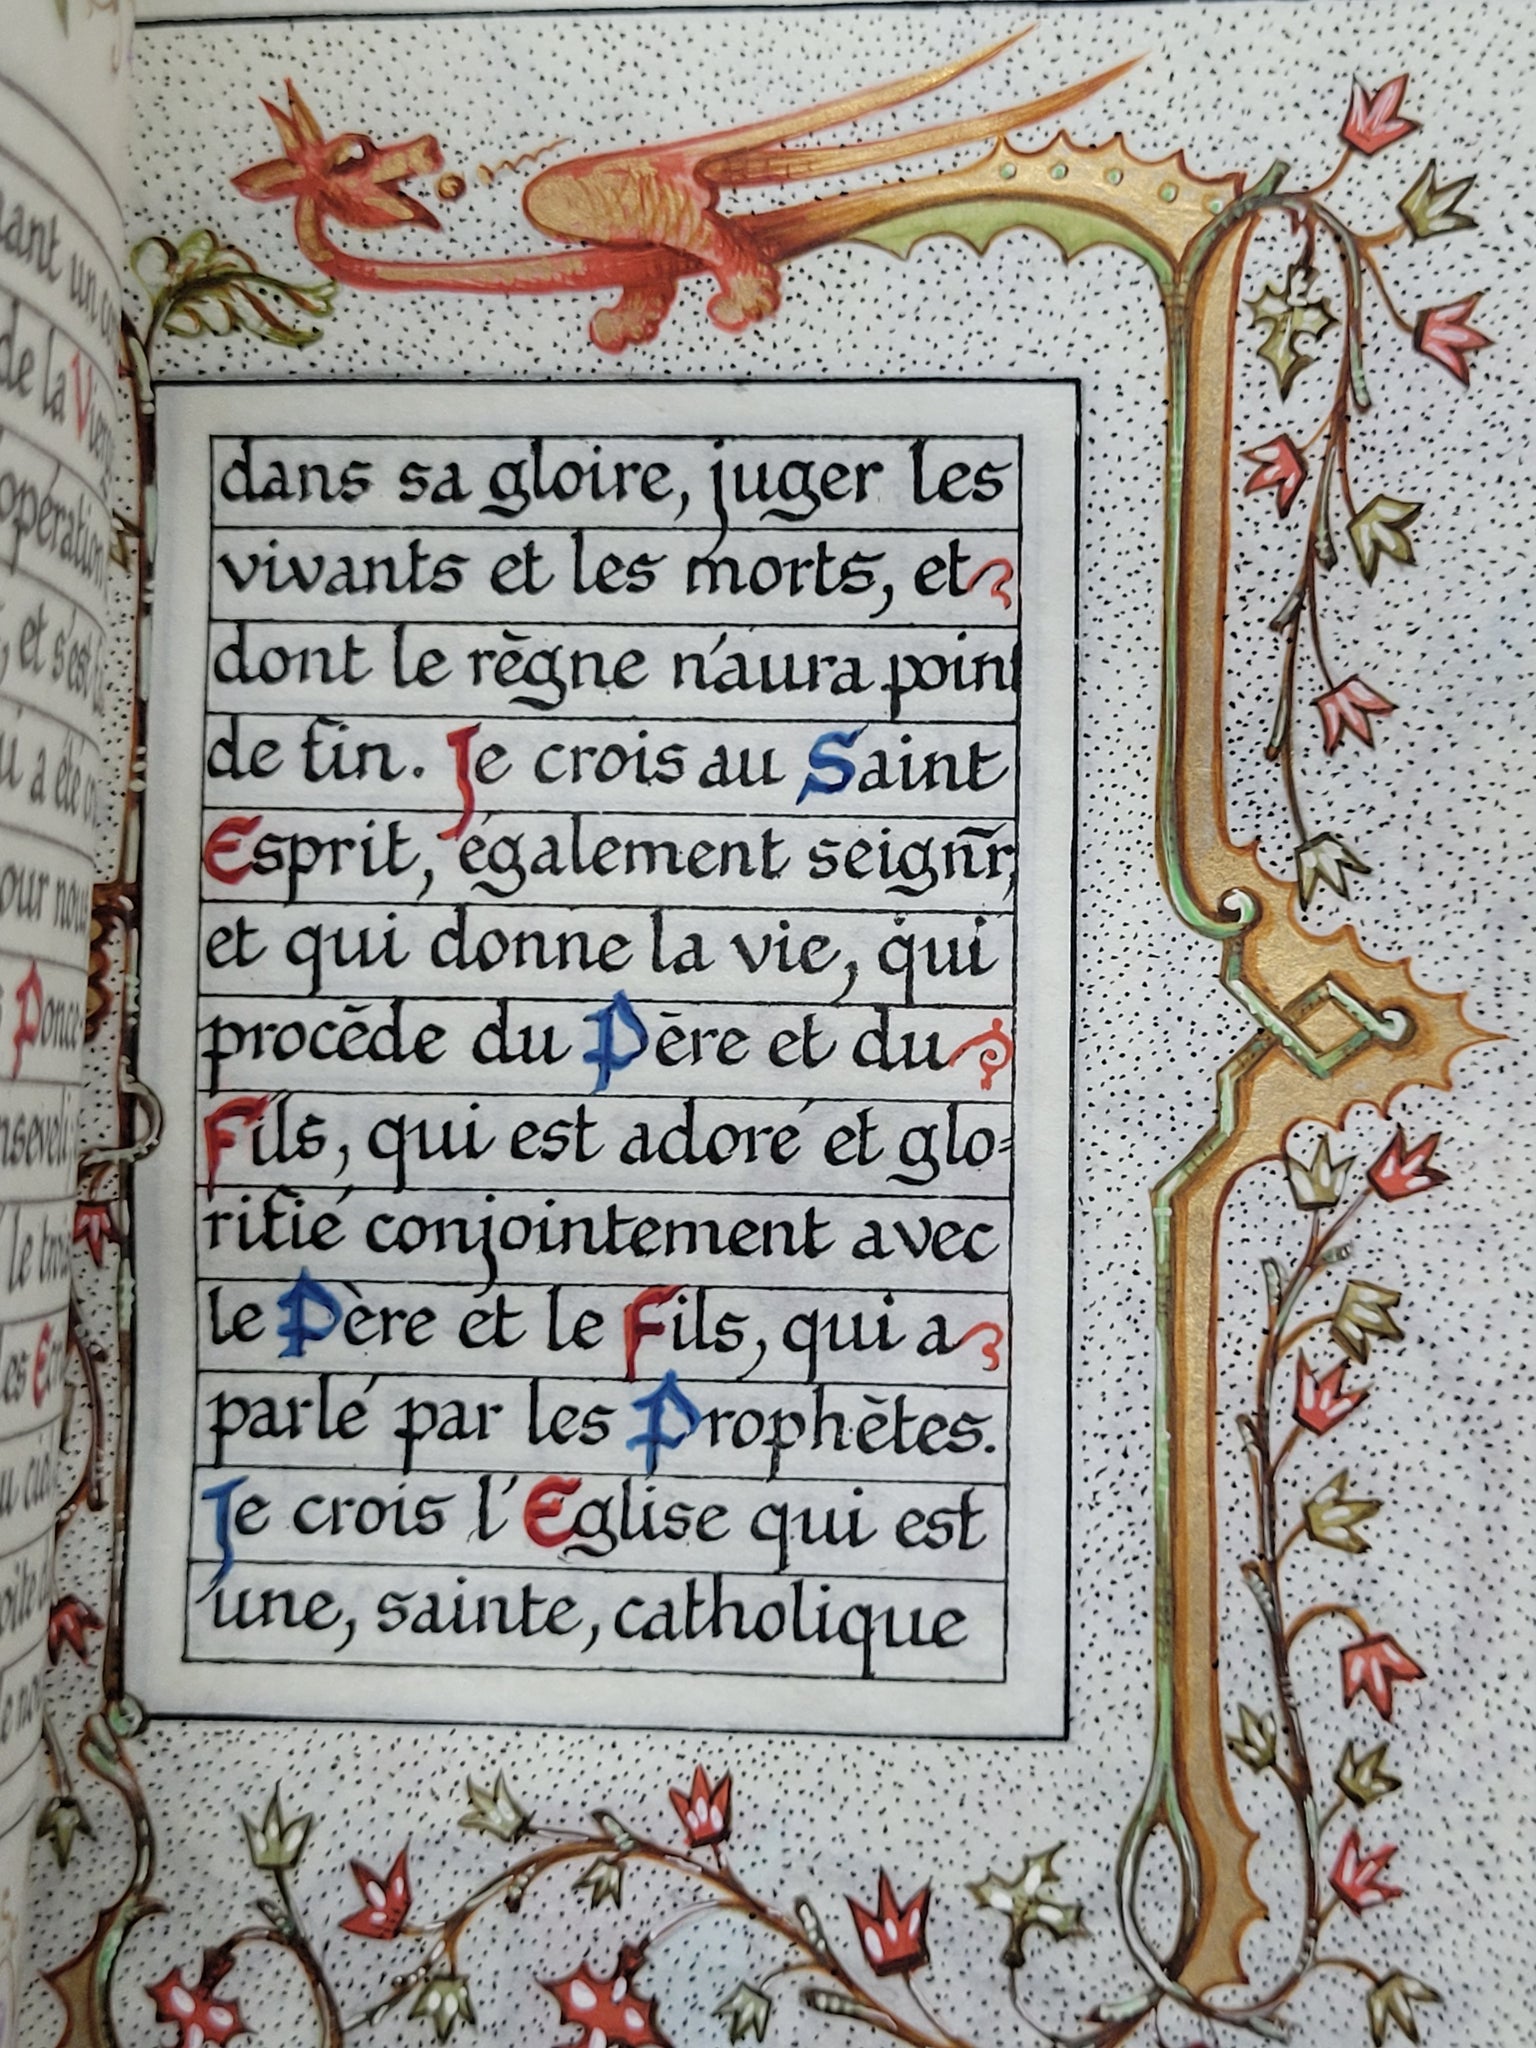 dans sa gloire, juger les
vivants et les morts, et
dont le règne n'aura point
de fin. Je crois au Saint
Esprit, également seign̄r,
et qui donne la vie, qui
procède du Père et du
Fils, qui est adoré et glo-
rifié conjointement avec
le Père et le Fils, qui a
parlé par les Prophètes.
Je crois l'Eglise qui est
une, sainte, catholique
de la
opération
et s'est
a été
nous
Ponce
le
les